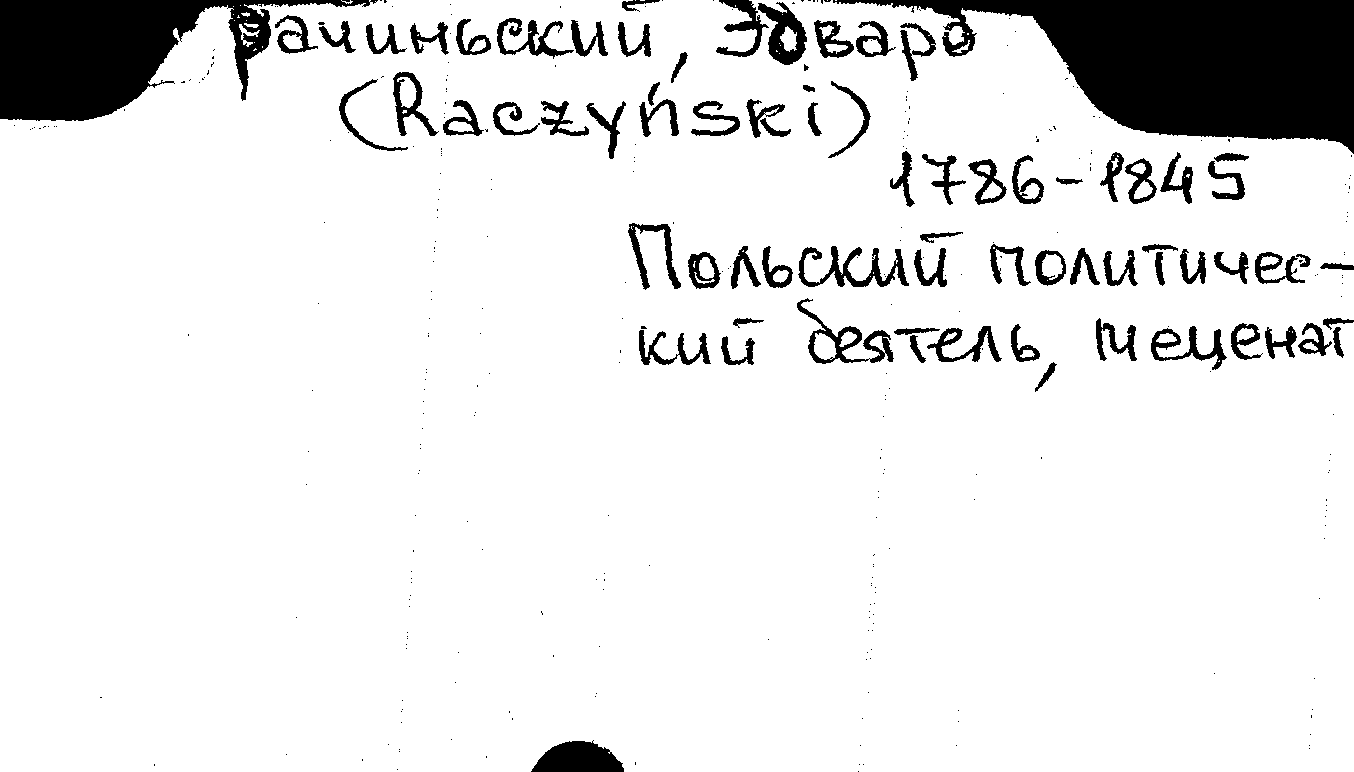 Рачиньский, Эдвард
(Raczyński)
1786-1845
Польский политичес-
кий деятель, меценат